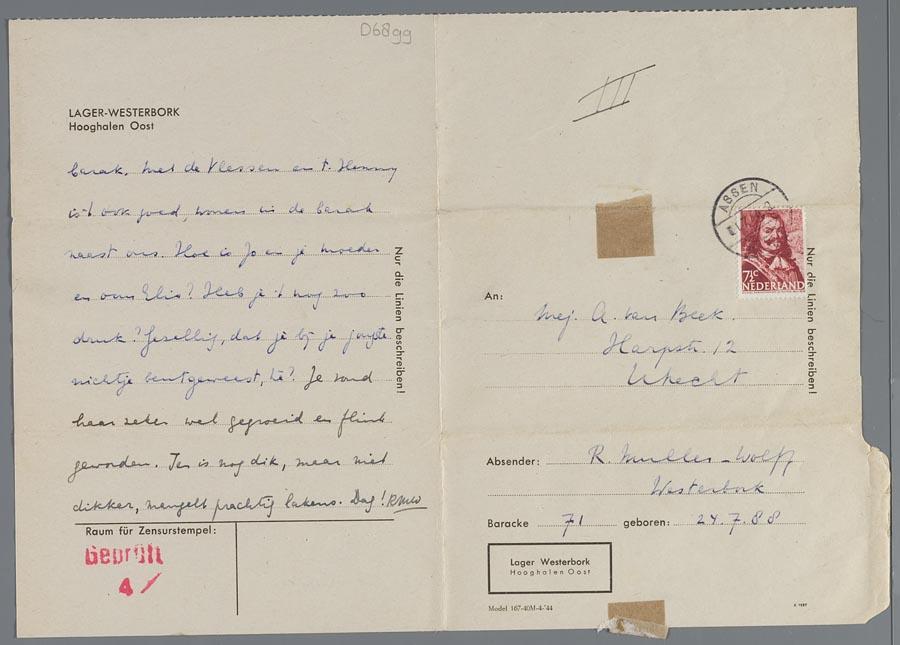 D6899
LAGER-WESTERBORK
Hooghalen Oost
barak. Met de Vlessen en t. Henny
is 't ook goed, wonen in de barak
naast ons. Hoe is Jo en je moeder
en oom Elio? Heb je 't nog zoo
druk? Gezellig, dat je bij je jongste
nichtje bent geweest, hè? Je vond
haar zeker wel gegroeid en flink
geworden. Jen is nog dik, maar niet
dikker, mangelt prachtig lakens. Dag! RMW
Nur die Linien beschreiben!
Raum für Zensurstempel:
Geprüft
4 /
III
ASSEN
7½c
NEDERLAND
Nur die Linien beschreiben!
An:
Mej. A. van Beek.
Harpstr. 12
Utrecht
Absender: R. Muller-Wolff
Westerbork
Baracke 71 geboren: 24.7.88
Lager Westerbork
Hooghalen Oost
Model 167-40M-4-'44